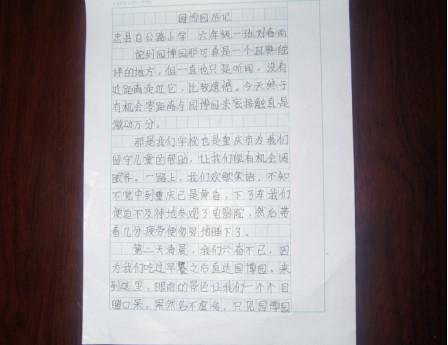 园博园游记
忠县白公路小学 六年级一班刘春雨
说到园博园那可真是一个耳熟能
详的地方，但一直也只是听闻，没有
近距离走近它，比较遗憾。今天终于
有机会零距离与园博园亲密接触真是
激动万分。
那是我们学校也是重庆市为我们
留守儿童的帮助，让我们能有机会阔
眼界。一路上，我们欢歌笑语，不知
不觉中到重庆已是黄昏，下了车我们
便迫不及待地参观了电影院，然后带
着几分疲劳便匆匆地睡下了。
第二天清晨，我们兴奋不已，因
为我们吃过早餐之后直达园博园。来
到这里，眼前的景色让我们一个个目
瞪口呆，果然名不虚传，只见园博园